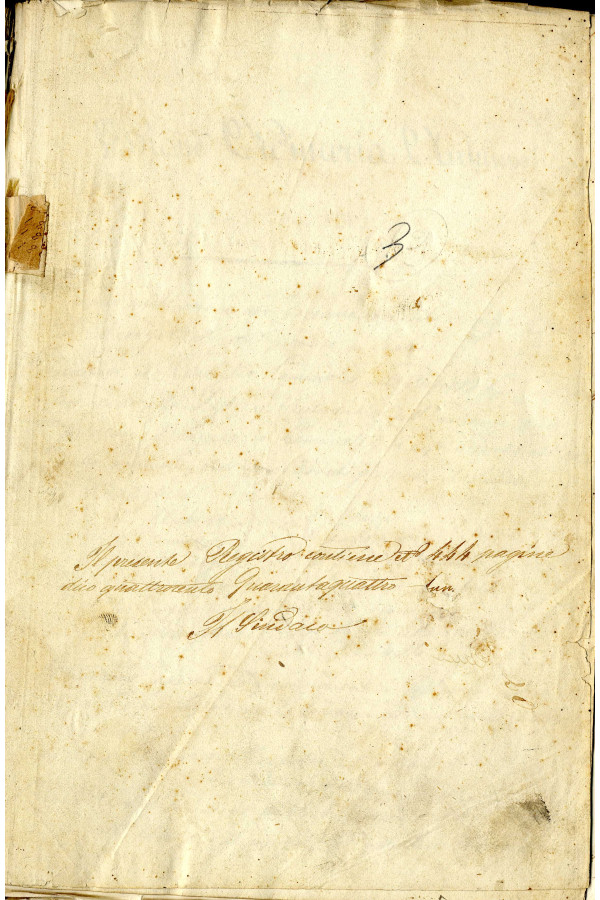 3
Il presente Registro contiene N° 444 pagine
dico quattrocento Quarantaquattro
Il Sindaco